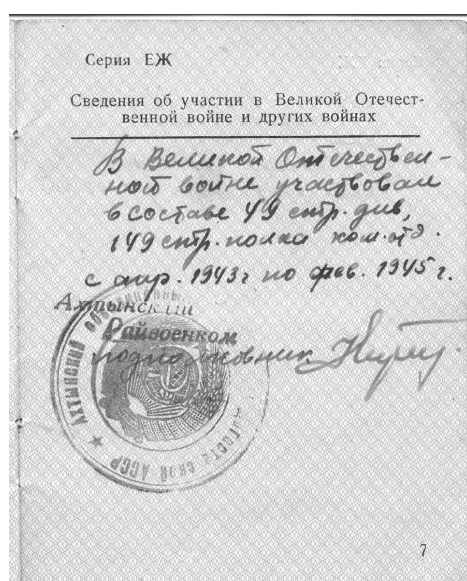 Серия ЕЖ
Сведения об участии в Великой Отечест-
венной войне и других войнах
В Великой Отечествен-
ной войне участвовал
в составе 49 стр. див,
149 стр. полка ком. отд.
с апр. 1943г по фев. 1945 г.
Ахтынский
Райвоенком
подполковник
АХТЫНСКИЙ
ской АССР
7